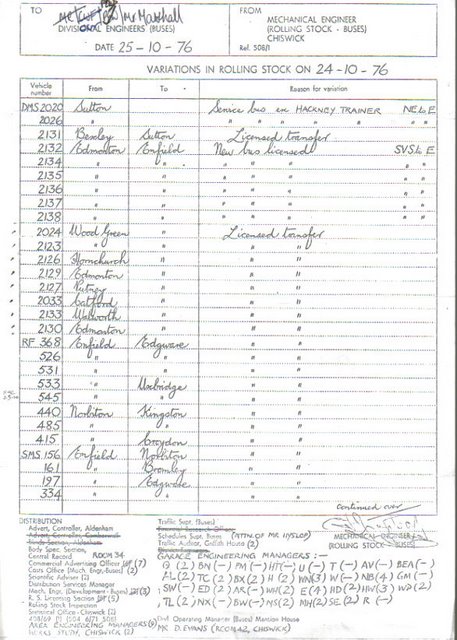 TO Mr Marshall
DIVISIONAL ENGINEERS (BUSES)
DATE 25-10-76
FROM
MECHANICAL ENGINEER
(ROLLING STOCK - BUSES)
CHISWICK
Ref. 508/1
VARIATIONS IN ROLLING STOCK ON 24-10-76
Vehicle number From To Reason for variation
DMS 2020 Sutton Service bus ex HACKNEY TRAINER NE to E
2026 " " " " " " "
2131 Bexley Sutton Licensed transfer
2132 Edmonton Enfield New bus licensed SVS to E
2134 " " " " " "
2135 " " " " " "
2136 " " " " " "
2137 " " " " " "
2138 " " " " " "
2024 Wood Green " Licensed transfer
2123 " " " "
2126 Hornchurch " " "
2129 Edmonton " " "
2127 Putney " " "
2033 Catford " " "
2133 Walworth " " "
2130 Edmonton " " "
RF 368 Enfield Edgware " "
526 " " " "
531 " " " "
533 " Uxbridge " "
545 " " " "
440 Norbiton Kingston " "
485 " " " "
415 " Croydon " "
SMS 156 Enfield Norbiton " "
161 " Bromley " "
197 " Edgware " "
334 " " " "
continued over
DISTRIBUTION
Advert. Controller, Aldenham
Body Spec. Section,
Central Record ROOM 34
Commercial Advertising Officer (7)
Costs Office (Mech. Eng.-Buses) (2)
Scientific Adviser (2)
Distribution Services Manager
Mech. Engr. (Development - Buses) (3)
R. S. Licensing Section (5)
Rolling Stock Inspection
Technical Office - Chiswick (2)
AREA ENGINEERING MANAGERS
WORKS STUDY, CHISWICK (2)
Traffic Supt. (Buses)
Schedules Supt. Buses (ATTN OF MR HYSLOP)
Traffic Auditor, Griffith House (2)
GARAGE ENGINEERING MANAGERS :-
MECHANICAL ENGINEER
(ROLLING STOCK - BUSES)
Chief Operating Manager (Buses) Mantion House
MR D. EVANS (ROOM A2, CHISWICK)